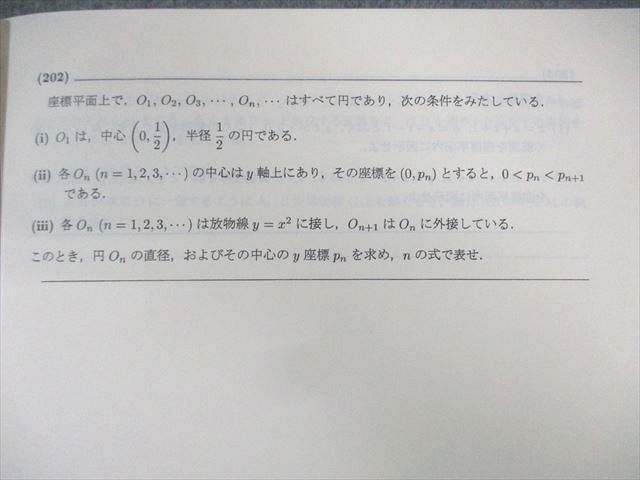 (202)
座標平面上で，O₁, O₂, O₃, ⋯, Oₙ, ⋯ はすべて円であり，次の条件をみたしている．
(i) O₁ は，中心 (0, 1/2)，半径 1/2 の円である．
(ii) 各 Oₙ (n = 1, 2, 3, ⋯) の中心は y 軸上にあり，その座標を (0, pₙ) とすると，0 < pₙ < pₙ₊₁
である．
(iii) 各 Oₙ (n = 1, 2, 3, ⋯) は放物線 y = x² に接し，Oₙ₊₁ は Oₙ に外接している．
このとき，円 Oₙ の直径，およびその中心の y 座標 pₙ を求め，n の式で表せ．